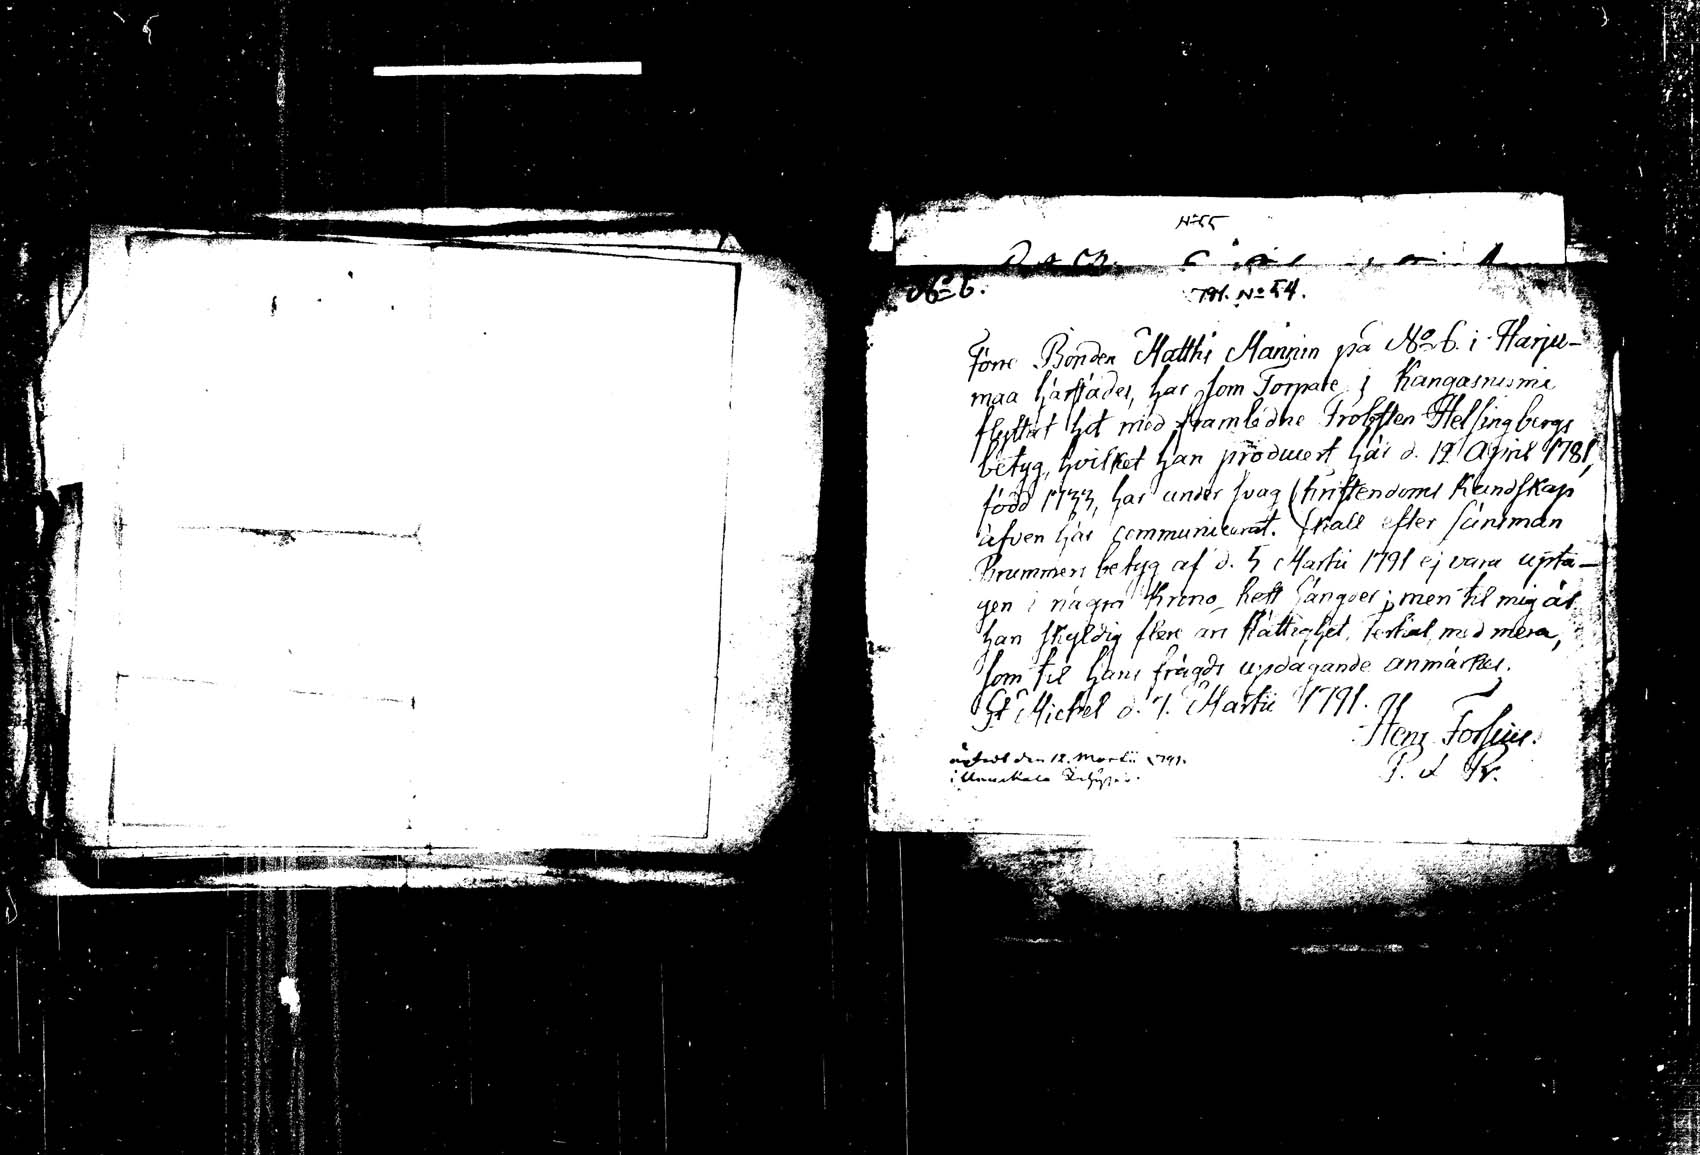 No 55
No 6.
791. No 54.
Förre Bonden Matthi Männin på No 6. i Harju-
maa härstädes, har som Torpare i Kangasniemi
flyttat hit med framledne Probsten Helsingbergs
betyg, hvilket han producerat här d. 12 April 1781,
född 1733, har under svag Christendoms Kundskap
äfven här communicerat. Skall efter Länsman
Brummers betyg af d. 5 Martii 1791 ej vara upta-
gen i några Krono rest längder; men til mig är
han skyldig flere års rättighet, Tertial med mera,
som til hans frägds updagande anmärkes.
St Michel d. 7. Martii 1791.
Henr Forsius.
P. & Pr.
den 12. Martii 1791.
i